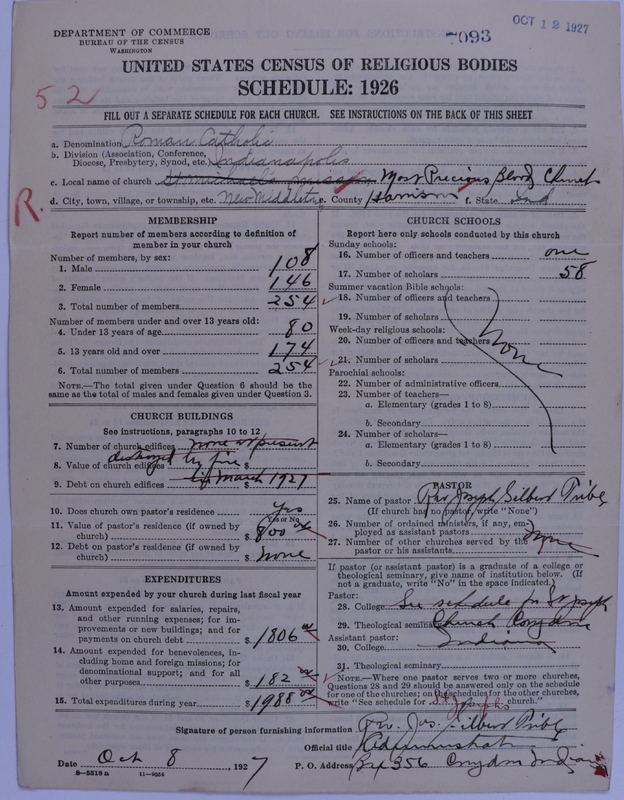 OCT 12 1927
7093
DEPARTMENT OF COMMERCE
BUREAU OF THE CENSUS
WASHINGTON
UNITED STATES CENSUS OF RELIGIOUS BODIES
SCHEDULE: 1926
52
FILL OUT A SEPARATE SCHEDULE FOR EACH CHURCH. SEE INSTRUCTIONS ON THE BACK OF THIS SHEET
a. Denomination Roman Catholic
b. Division (Association, Conference, Diocese, Presbytery, Synod, etc.) Indianapolis
c. Local name of church St Michael's Mission Most Precious Blood Church
R.
d. City, town, village, or township, etc. New Middletn e. County Harrison f. State Ind
MEMBERSHIP
Report number of members according to definition of member in your church
Number of members, by sex:
1. Male 108
2. Female 146
3. Total number of members 254
Number of members under and over 13 years old:
4. Under 13 years of age 80
5. 13 years old and over 174
6. Total number of members 254
NOTE.—The total given under Question 6 should be the same as the total of males and females given under Question 3.
CHURCH BUILDINGS
See instructions, paragraphs 10 to 12
7. Number of church edifices none at present
8. Value of church edifices destroyed by fire $
9. Debt on church edifices $ March 1927
10. Does church own pastor's residence? Yes
Yes or No
11. Value of pastor's residence (if owned by church) $ 800 00
12. Debt on pastor's residence (if owned by church) $ None
EXPENDITURES
Amount expended by your church during last fiscal year
13. Amount expended for salaries, repairs, and other running expenses; for improvements or new buildings; and for payments on church debt $ 1806 00
14. Amount expended for benevolences, including home and foreign missions; for denominational support; and for all other purposes $ 182 00
15. Total expenditures during year $ 1988 00
CHURCH SCHOOLS
Report here only schools conducted by this church
Sunday schools:
16. Number of officers and teachers one
17. Number of scholars 58
Summer vacation Bible schools:
18. Number of officers and teachers
19. Number of scholars
Week-day religious schools:
20. Number of officers and teachers None
21. Number of scholars
Parochial schools:
22. Number of administrative officers
23. Number of teachers—
a. Elementary (grades 1 to 8)
b. Secondary
24. Number of scholars—
a. Elementary (grades 1 to 8)
b. Secondary
PASTOR
25. Name of pastor Rev Joseph Gilbert Tribe
(If church has no pastor, write "None")
26. Number of ordained ministers, if any, employed as assistant pastors None
27. Number of other churches served by the pastor or his assistants
If pastor (or assistant pastor) is a graduate of a college or theological seminary, give name of institution below. (If not a graduate, write "No" in the space indicated.)
Pastor:
28. College See schedule for St Joseph
29. Theological seminary Church Corydon
Assistant pastor: Indiana
30. College
31. Theological seminary
NOTE.—Where one pastor serves two or more churches, Questions 28 and 29 should be answered only on the schedule for one of the churches; on the schedule for the other churches, write "See schedule for St Josephs church."
Signature of person furnishing information Rev. Jos. Gilbert Tribe
Official title Administrator
Date Oct 8, 1927 P. O. Address Box 356 Corydon Indiana
8—5518 a 11—9354